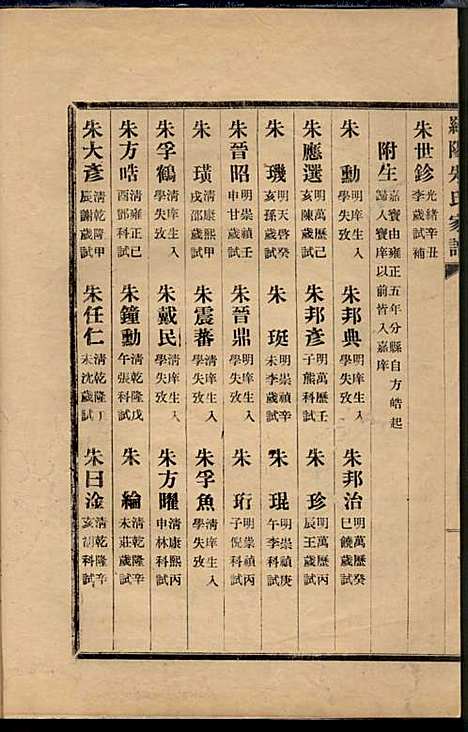 朱世鉁 光緒辛丑李歲試補
附生 嘉寶由雍正五年分縣自方皓起歸入寶庠以前皆入嘉庠
朱勳 明庠生入學失攷 朱邦典 明庠生入學失攷 朱邦治 明萬歷癸巳饒歲試
朱應選 明萬歷己亥陳歲試 朱邦彥 明萬歷壬子熊科試 朱珍 明萬歷丙辰王歲試
朱璣 明天啓癸亥孫歲試 朱珽 明崇禎辛未李歲試 朱琨 明崇禎庚午李科試
朱晉昭 明崇禎壬申甘歲試 朱晉鼎 明庠生入學失攷 朱珩 明崇禎丙子倪科試
朱璜 清康熙甲戌邵歲試 朱震蕃 清庠生入學失攷 朱孚魚 清庠生入學失攷
朱孚鶴 清庠生入學失攷 朱戴民 清庠生入學失攷 朱方曜 清康熙丙申林科試
朱方皓 清雍正己酉鄧科試 朱鐘勳 清乾隆戊午張科試 朱綸 清乾隆辛未莊歲試
朱大彥 清乾隆甲辰謝歲試 朱任仁 清乾隆丁未沈歲試 朱曰淦 清乾隆辛亥胡科試
朱氏家譜